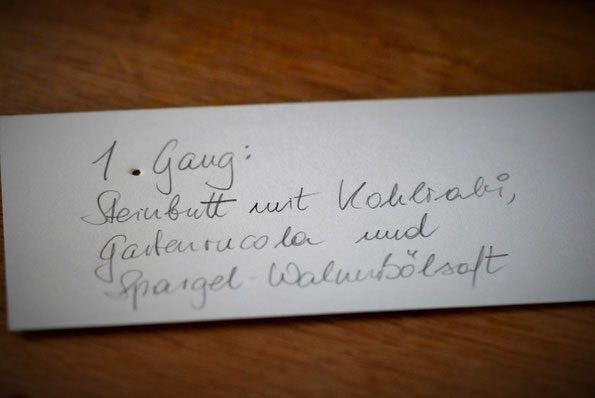 1. Gang:
Steinbutt mit Kohlrabi,
Gartenrucola und
Spargel-Walnußölsaft